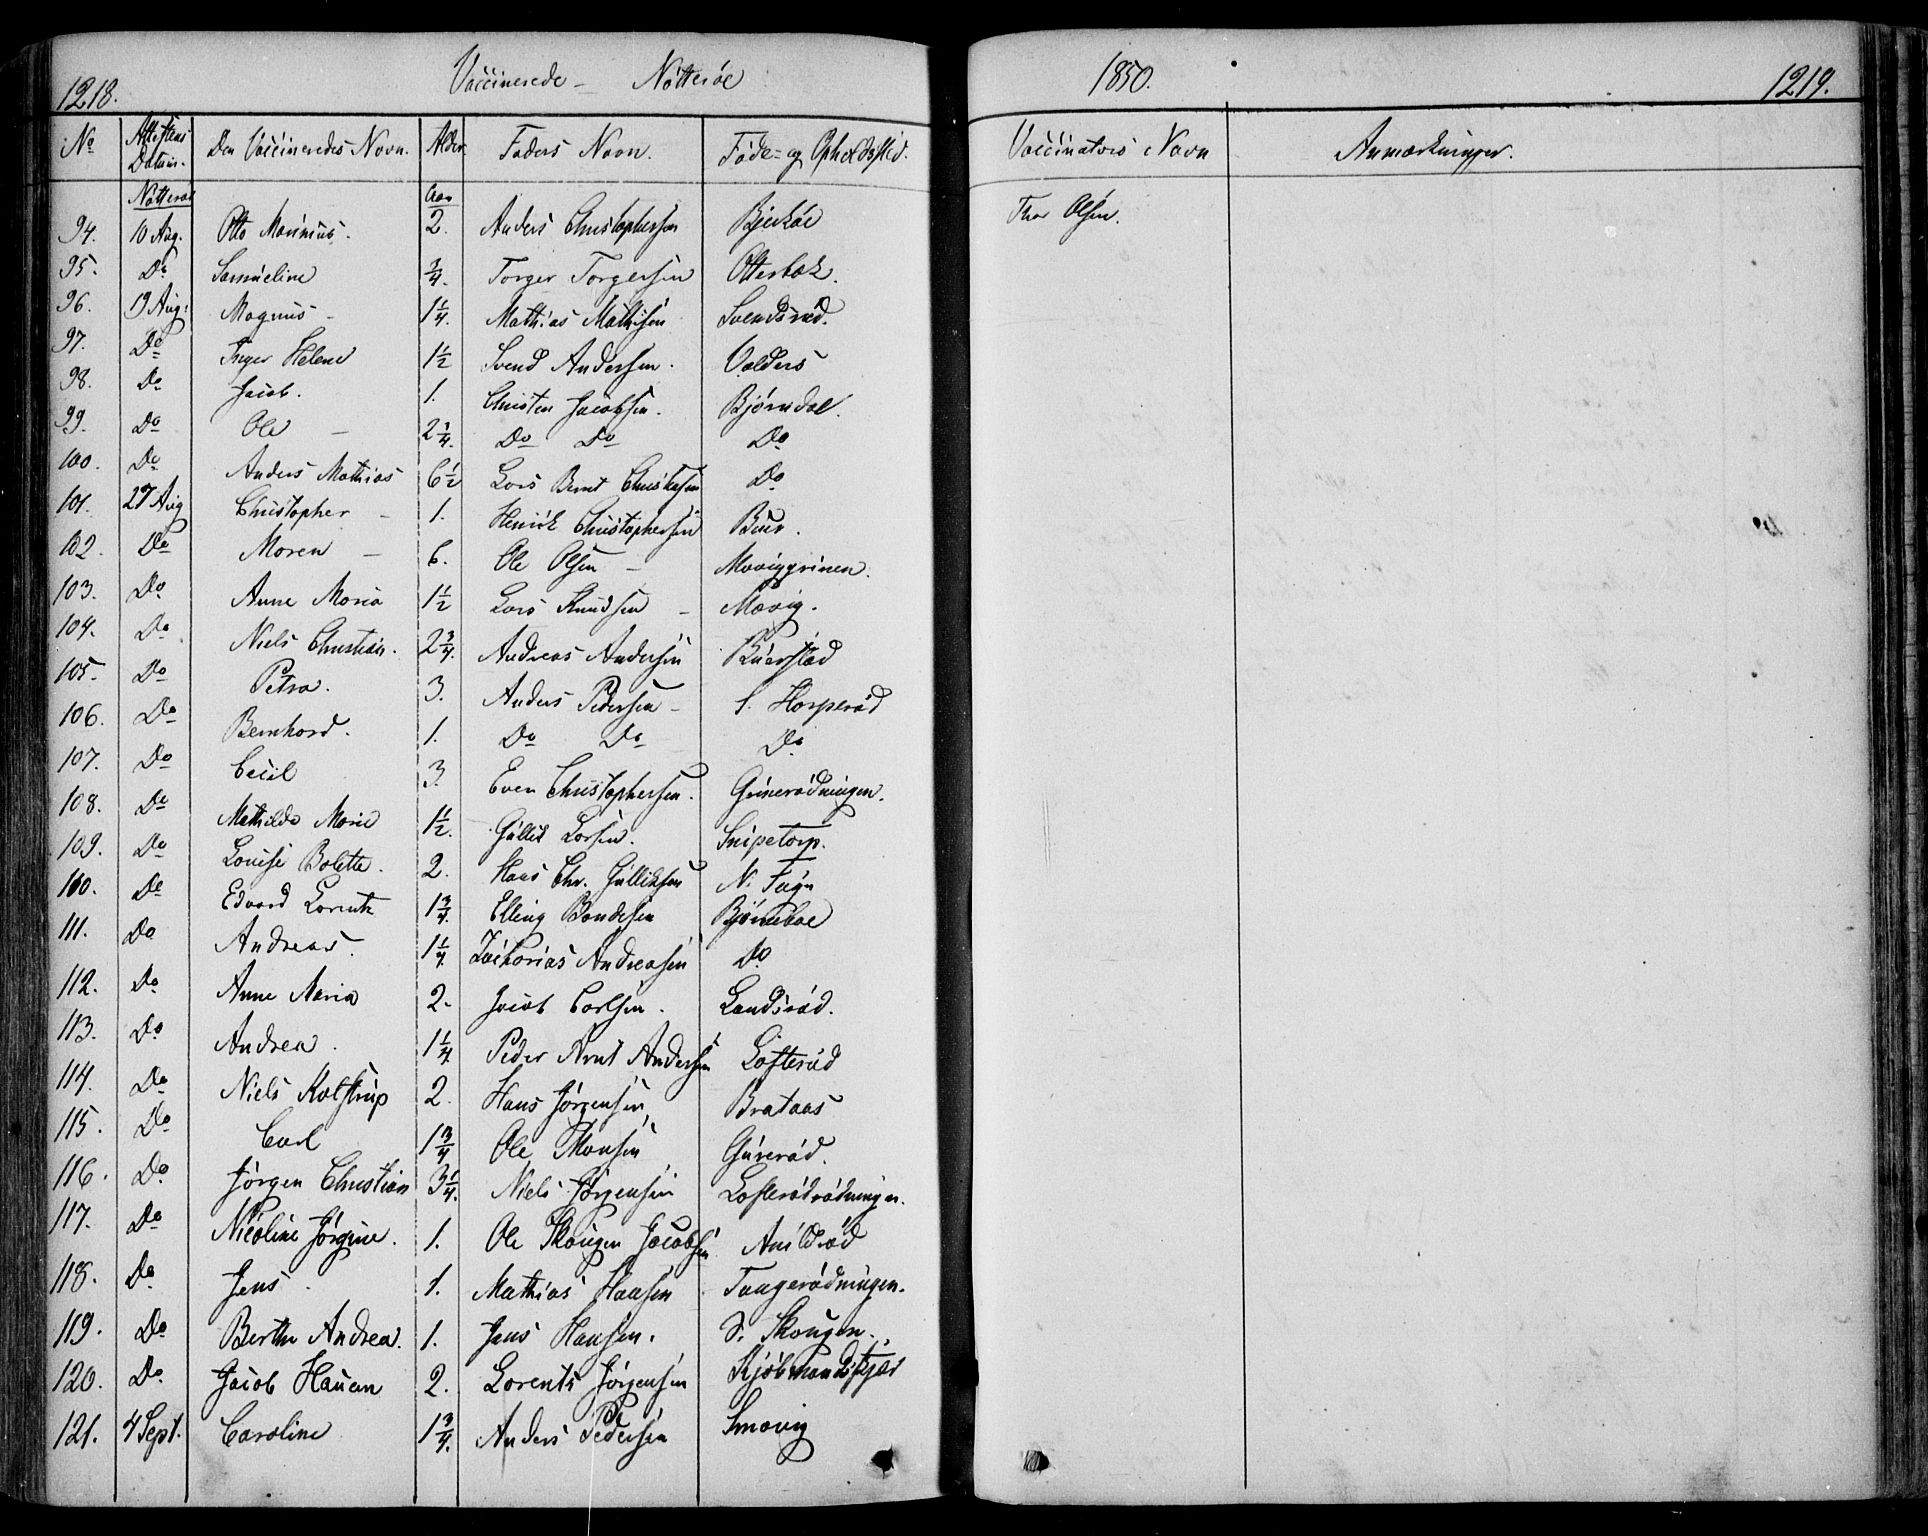 1218. Vaccinerede - Nötteröe 1850. 1219.
No Attestens Datum. Den Vaccineredes Navn. Alder. Faders Navn. Föde- og Opholdssted. Vaccinators Navn Anmærkninger.
Nötteröe Aar
94. 10 Aug. Otto Marinius. 2. Anders Christophersen Bjerköe Thor Olsen.
95. Do Samueline 3/4. Torger Torgersen Otterbæk.
96. 19 Aug. Magnus - 1 1/4. Mathias Mathisen Svendsröd.
97. Do Inger Helene 1 1/2 Svend Andersen. Valders
98. Do Jacob. 1. Christen Jacobsen. Bjørndal.
99. Do Ole - 2 1/4. Do Do Do
100. Do Anders Mathias 6 1/2 Lars Bernt Do
101. 27 Aug Christopher - 1. Henrik Christophersen Buer.
102. Do Maren - 6. Ole Olsen -
103. Do Anne Maria 1 1/2 Lars Knudsen - Mævig.
104. Do Niels Christian. 2 3/4. Andreas Andersen Buerstad
105. Do Petra. 3. Anders Pedersen - S. Horperöd
106. Do Bernhard. 1. Do Do Do
107. Do Cecil 3. Even Christophersen.
108. Do Mathilde Marie 1 1/2. Larsen. Snipetorp.
109. Do Louise Bolette. 2. Hans Chr. Gulliksen N. Fögn
110. Do Edvard Lorentz 1 3/4. Elling Bondesen Bjørneboe
111. Do Andreas. 1 1/4 Zacharias Andreasen Do
112. Do Anne Maria 2. Jacob Carlsen. Landsröd.
113. Do Andrea. 1 1/4 Peder Arnt Andersen Lofteröd
114. Do Niels Kolstrup 2. Hans Jörgensen, Brataas
115. Do Carl 1 3/4 Ole Monsen
116. Do Jörgen Christian 3 1/4. Niels Jörgensen Lofterödrödningen.
117. Do Nicoline Jörgine. 1. Ole Skougen Jacobsen
118. Do Jens. 1. Mathias Hansen
119. Do Berthe Andrea. 1. Jens Hansen. S. Skougen.
120. Do Jacob Hauan 2. Lorents Jörgensen Kjöbmandskjær
121. 4 Sept. Caroline 1 3/4. Anders Pedersen Smævig